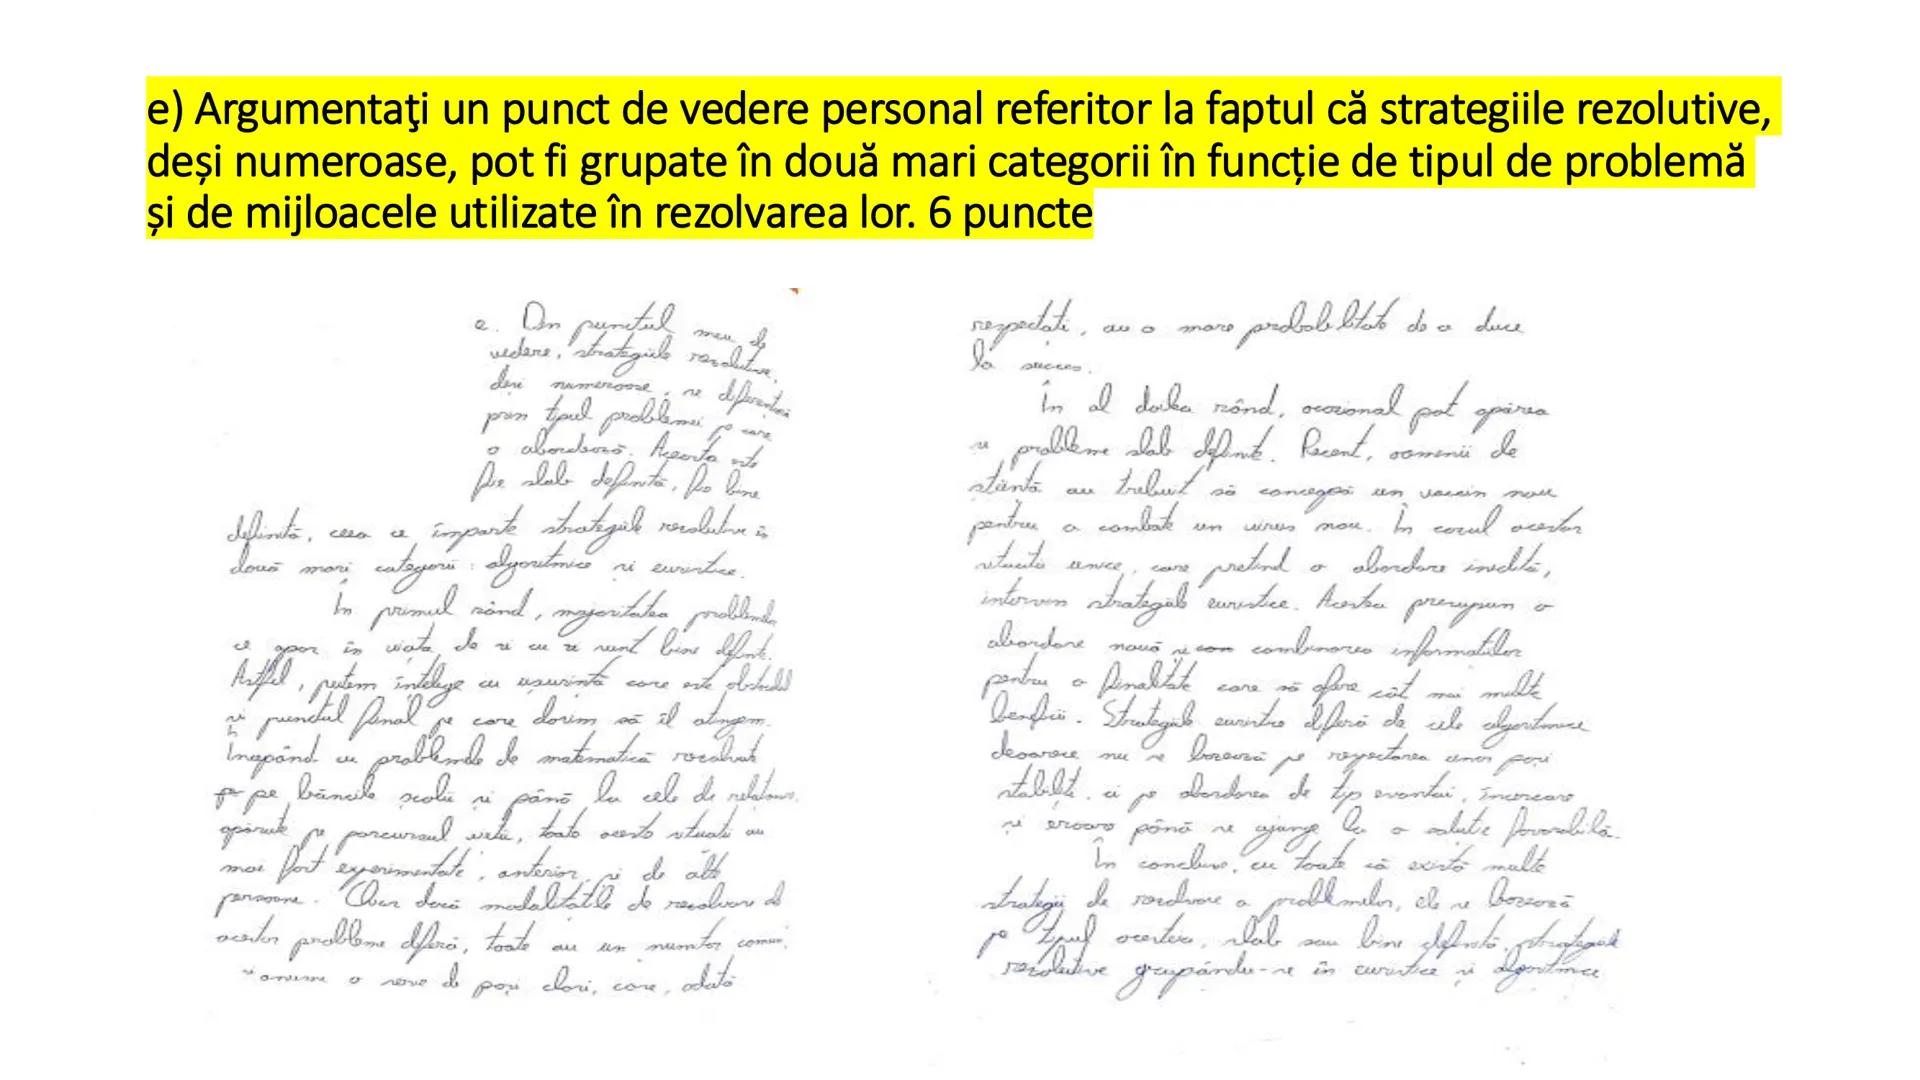 e) Argumentaţi un punct de vedere personal referitor la faptul că strategiile rezolutive,
deși numeroase, pot fi grupate în două mari categorii în funcție de tipul de problemă
și de mijloacele utilizate în rezolvarea lor. 6 puncte
e. Din punctul meu de
vedere, strategiile rezolutive,
deși numeroase, se diferențiază
prin tipul problemei pe care
o abordează. Aceasta este
fie slab definită, fie bine
definită, ceea ce împarte strategiile rezolutive în
două mari categorii: algoritmice și euristice.
În primul rând, majoritatea problemelor
ce apar în viața de zi cu zi sunt bine definite.
Astfel, putem înțelege cu ușurință care este obstacolul
și punctul final pe care dorim să îl atingem.
Începând cu problemele de matematică rezolvate
pe băncile școlii și până la cele de relaționare
apărute pe parcursul vieții, toate aceste situații au
mai fost experimentate, anterior, și de alte
persoane. Chiar dacă modalitățile de rezolvare al
acestor probleme diferă, toate au un numitor comun,
și anume o serie de pași clari, care, odată
respectați, au o mare probabilitate de a duce
la succes.
În al doilea rând, ocazional pot apărea
și probleme slab definite. Recent, oamenii de
știință au trebuit să conceapă un vaccin nou
pentru a combate un virus nou. În cazul acestor
situații unice, care pretind o abordare inedită,
intervin strategiile euristice. Acestea presupun o
abordare nouă și combinarea informațiilor
pentru o finalitate care să ofere cât mai multe
beneficii. Strategiile euristice diferă de cele algoritmice
deoarece nu se bazează pe respectarea unor pași
stabiliți, ci pe abordarea de tip evantai, încercare
și eroare până se ajunge la o soluție favorabilă.
În concluzie, cu toate că există multe
strategii de rezolvare a problemelor, ele se bazează
pe tipul acesteia, slab sau bine definită, strategiile
rezolutive grupându-se în euristice și algoritmice